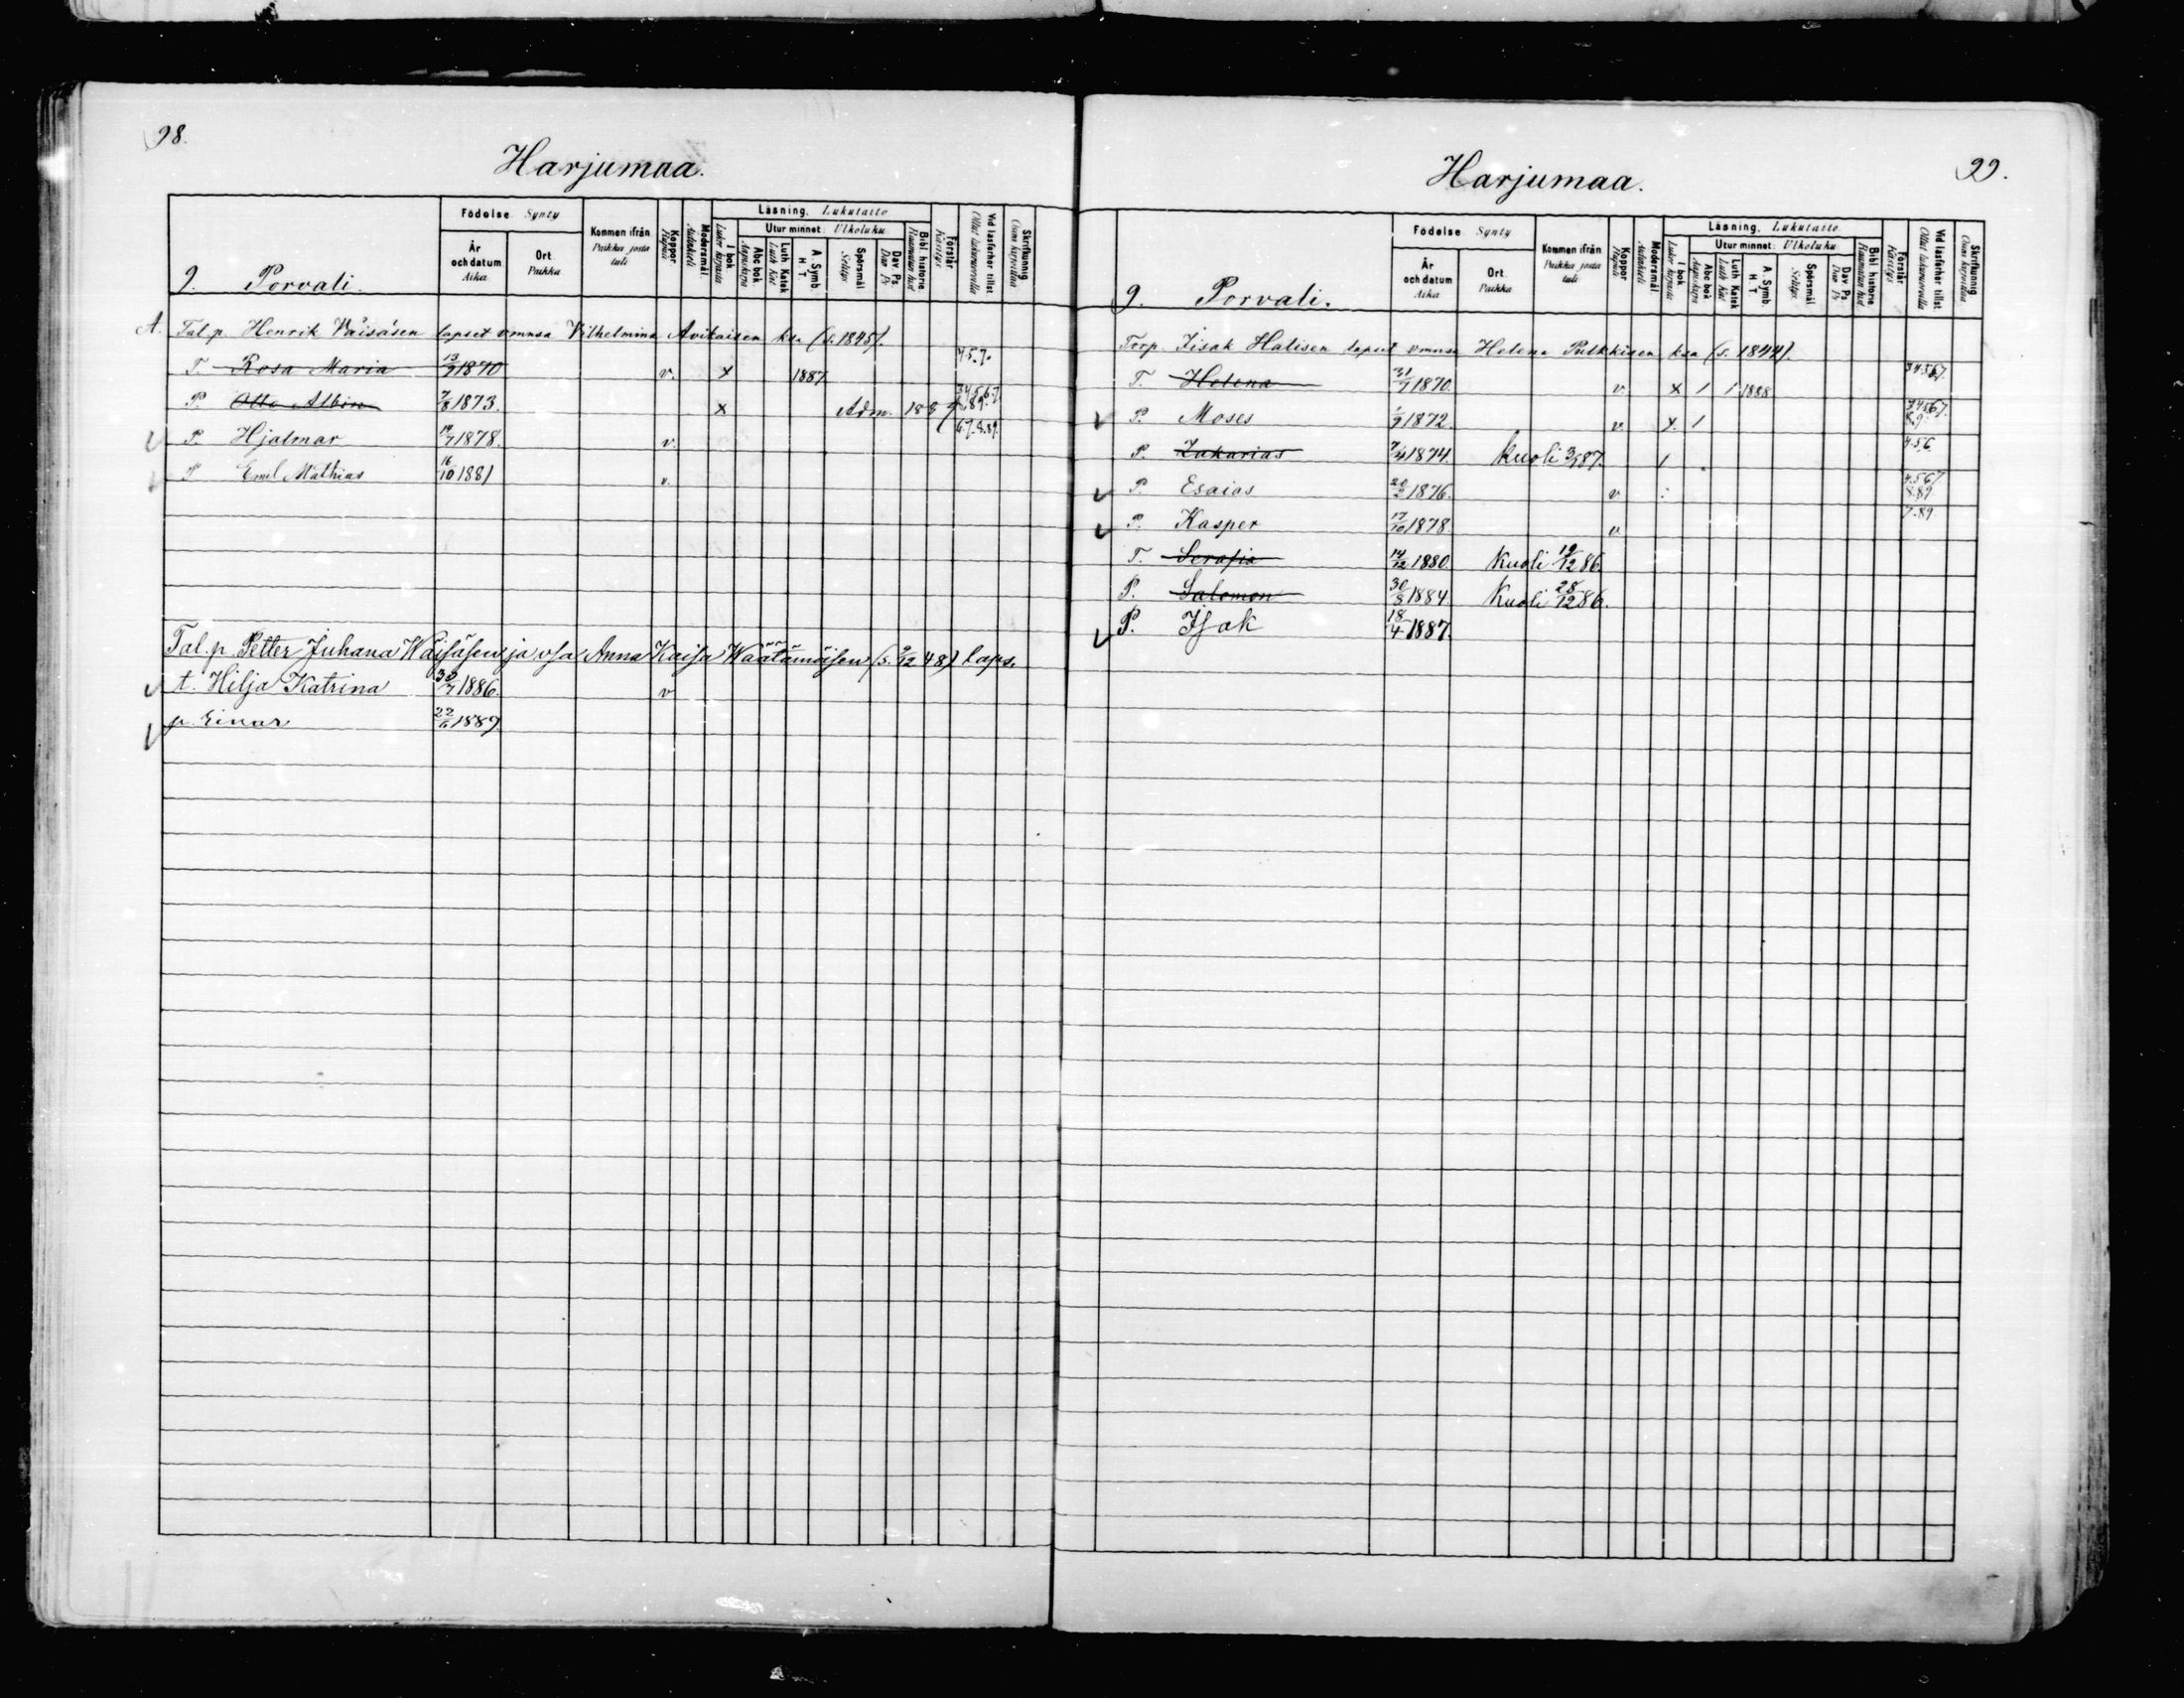 98.
Harjumaa.
Födelse Synty
Kommen ifrån Paikka josta tuli
Koppor Rupuli
Modersmål. Äidinkieli
Läsning. Lukutaito
I bok Luku kirjasta
Utur minnet: Ulkoluku
Abc bok Aapiskirja
Luth. Katek Luth Kat.
A. Symb. H. T.
Spörsmål Selitys
Dav. Ps. Dav. Ps
Bibl. historie Raamatun hist.
Förstår Käsitys
Vid läsförhör tillst. Ollut lukuvuoroilla
Skrifkunnig Osaa kirjoittaa
År och datum Aika
Ort. Paikka
9. Porvali.
A. Tal. p. Henrik Väisäsen lapset vmnsa Vilhelmina Avikaisen ksa (s. 1845).
T. Rosa Maria 13/9 1870 v. x 1887 4.5.7.
P. Otto Albin 7/8 1873. x Adm. 1889 3.4.5.6.7. 8.9.
P. Hjalmar 1878. v. 6.7.8.89.
P Emil Mathias 16/10 1881 v.
Tal. p. Petter Juhana Wäisäsen ja vsa Anna Kaisa Wäätämöisen (s. 9/12 48) laps.
t. Hilja Katrina 30/7 1886. v
p. Einar 22/6 1889.
99.
Harjumaa.
Födelse Synty
Kommen ifrån Paikka josta tuli
Koppor Rupuli
Modersmål. Äidinkieli
Läsning. Lukutaito
I bok Luku kirjasta
Utur minnet: Ulkoluku
Abc bok Aapiskirja
Luth. Katek Luth Kat.
A. Symb. H. T.
Spörsmål Selitys
Dav. Ps. Dav. Ps
Bibl. historie Raamatun hist.
Förstår Käsitys
Vid läsförhör tillst. Ollut lukuvuoroilla
Skrifkunnig Osaa kirjoittaa
År och datum Aika
Ort. Paikka
9. Porvali.
Torp. Iisak Halisen lapset vmnsa Helena Pulkkisen ksa (s. 1844).
T. Helena 31/7 1870. v x 1 1 1888 3.4.5.6.7.
P. Moses 1/9 1872. v. x. 1 3.4.5.6.7. 8.9.
P. Zakarias 7/4 1874. kuoli 3/87. 1 4.5.6
P. Esaias 20/2 1876. v : 4.5.6.7 8.89.
P. Kasper 17/10 1878. v. 7.89.
T. Serafia 14/12 1880. Kuoli 19/12 86.
P. Salomon 30/8 1884 Kuoli 28/12 86.
P. Isak 18/4 1887.